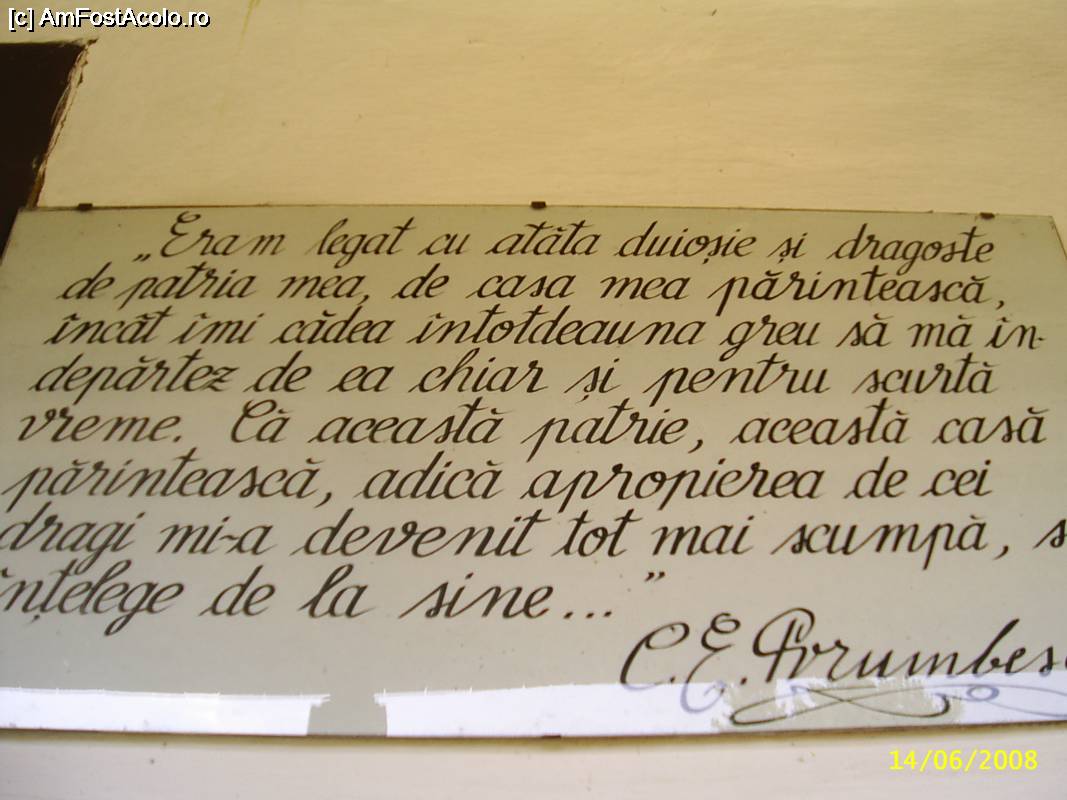 [c] AmFostAcolo.ro
„Eram legat cu atâta duioșie și dragoste
de patria mea, de casa mea părintească,
încât îmi cădea întotdeauna greu să mă în-
depărtez de ea chiar și pentru scurtă
vreme. Că această patrie, această casă
părintească, adică apropierea de cei
dragi mi-a devenit tot mai scumpă, s
înțelege de la sine..."
C.E. Porumbes
14/06/2008